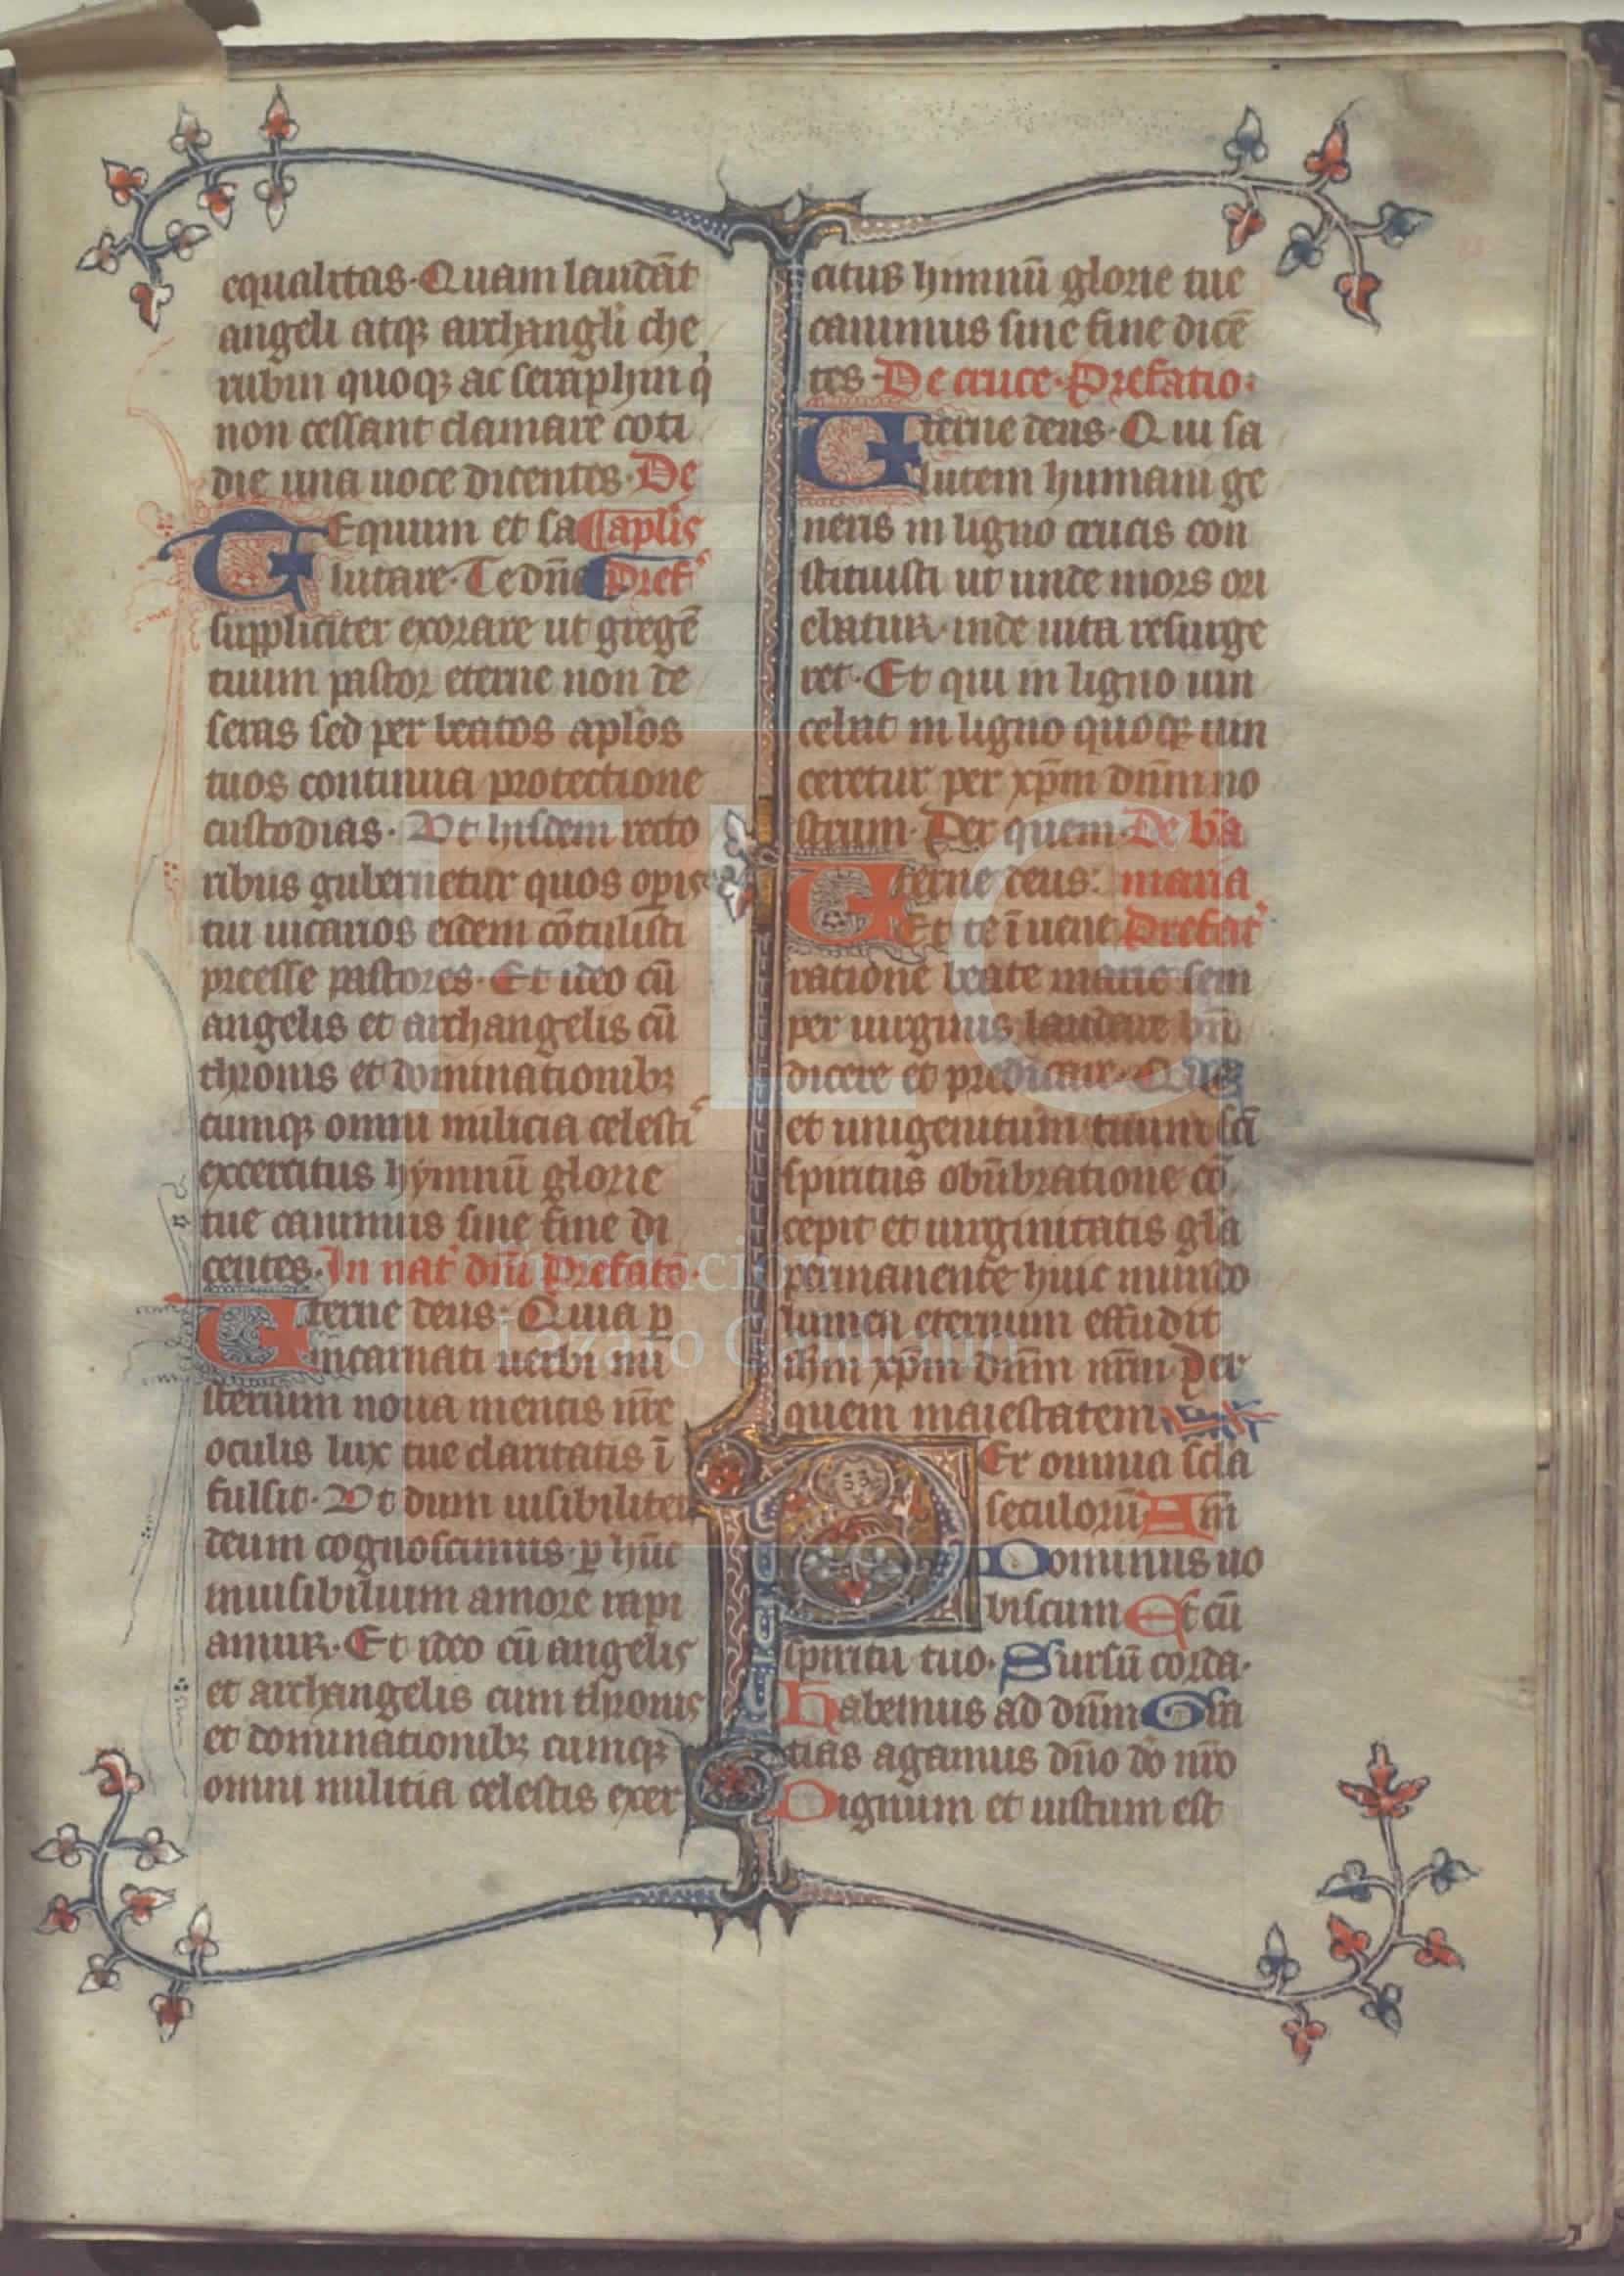 equalitas. Quam laudāt
angeli atqꝫ archangli che
rubin quoqꝫ ac seraphin q
non cessant clamare coti
die una uoce dicentes. De
Equum et sa aplis
lutare. Te dn̄e Pref
suppliciter exorare ut gregē
tuum pastor eterne non de
seras sed per beatos aplos
tuos continua protectione
custodias. Ut hisdem recto
ribus gubernetur quos opis
tui uicarios eidem cōtulisti
preesse pastores. Et ideo cū
angelis et archangelis cū
thronis et dominationibꝫ
cumqꝫ omni milicia celesti
excercitus hymnū glorie
tue canimus sine fine di
centes. In nat dn̄i Prefatō.
Eterne deus. Quia p
incarnati uerbi mi
sterium noua mentis nr̄e
oculis lux tue claritatis ī
fulsit. Ut dum uisibiliter
deum cognoscimus. p hūc
inuisibilium amore rapi
amur. Et ideo cū angelis
et archangelis cum thronis
et dominationibꝫ cumqꝫ
omni militia celestis exer
citus himnū glorie tue
canimus sine fine dicē
tes. De cruce. Prefatio.
Eterne deus. Qui sa
lutem humani ge
neris in ligno crucis con
stituisti ut unde mors ori
ebatur. inde uita resurge
ret. Et qui in ligno uin
cebat in ligno quoqꝫ uin
ceretur per xp̄m dn̄m no
strum. Per quem. De bā
Eterne deus. maria
Et te ī uene Prefat
ratione beate marie sem
per uirginis laudare bn̄
dicere et predicare. Que
et unigenitum tuum sc̄i
spiritus obūbratione cō
cepit et uirginitatis gla
permanente huic mundo
lumen eternum effudit
ihm xp̄m dn̄m nr̄m. Per
quem maiestatem
Per omnia sc̄la
seculorū Am̄
Dominus uo
biscum Et cū
spiritu tuo. Sursū corda.
Habemus ad dn̄m Gra
tias agamus dn̄o dō nr̄o
Dignum et iustum est
FLG
Fundación
Lázaro Galdiano